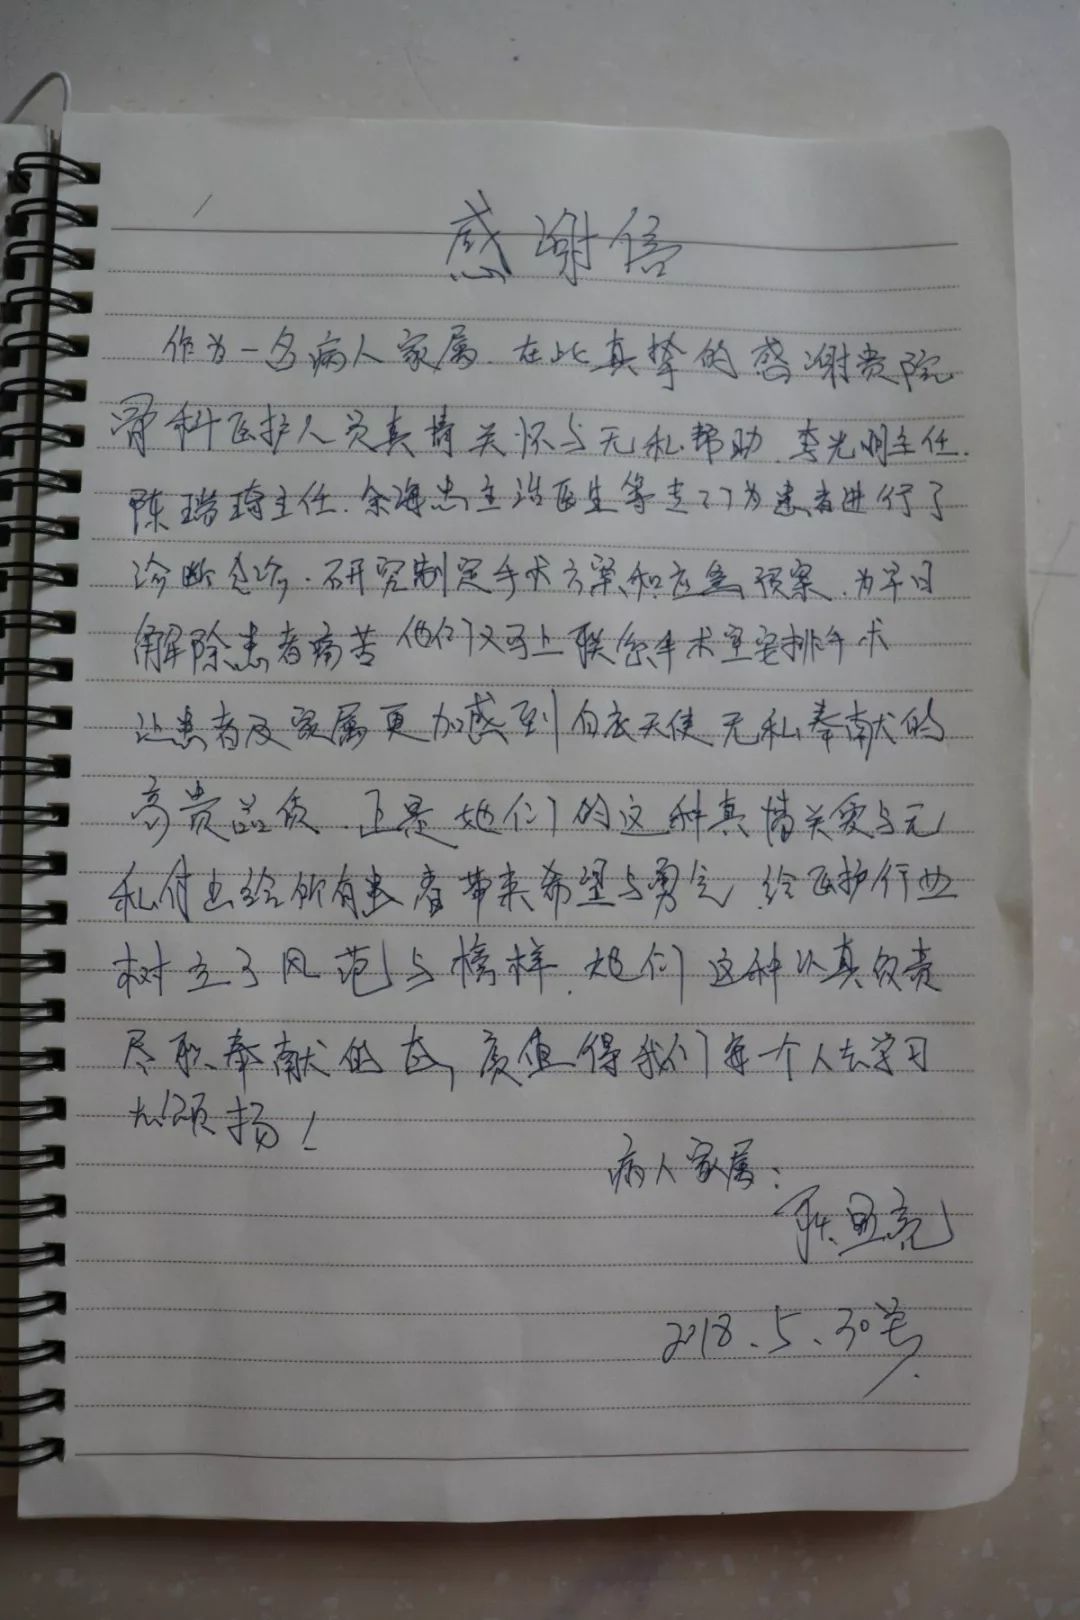 感谢信
作为一名病人家属.在此真挚的感谢贵院
骨科医护人员真情关怀与无私帮助.李光明主任.
陈瑞琦主任.余海忠主治医生等专门为患者进行了
诊断会诊.研究制定手术方案和应急预案.为早日
解除患者痛苦他们又马上联系手术室安排手术
让患者及家属更加感到白衣天使无私奉献的
高贵品质.正是她们的这种真情关爱与无
私付出给所有患者带来希望与勇气.给医护行业
树立了风范与榜样.她们这种认真负责
尽职奉献的态度值得我们每个人去学习
和颂扬!
病人家属:
2018.5.30号